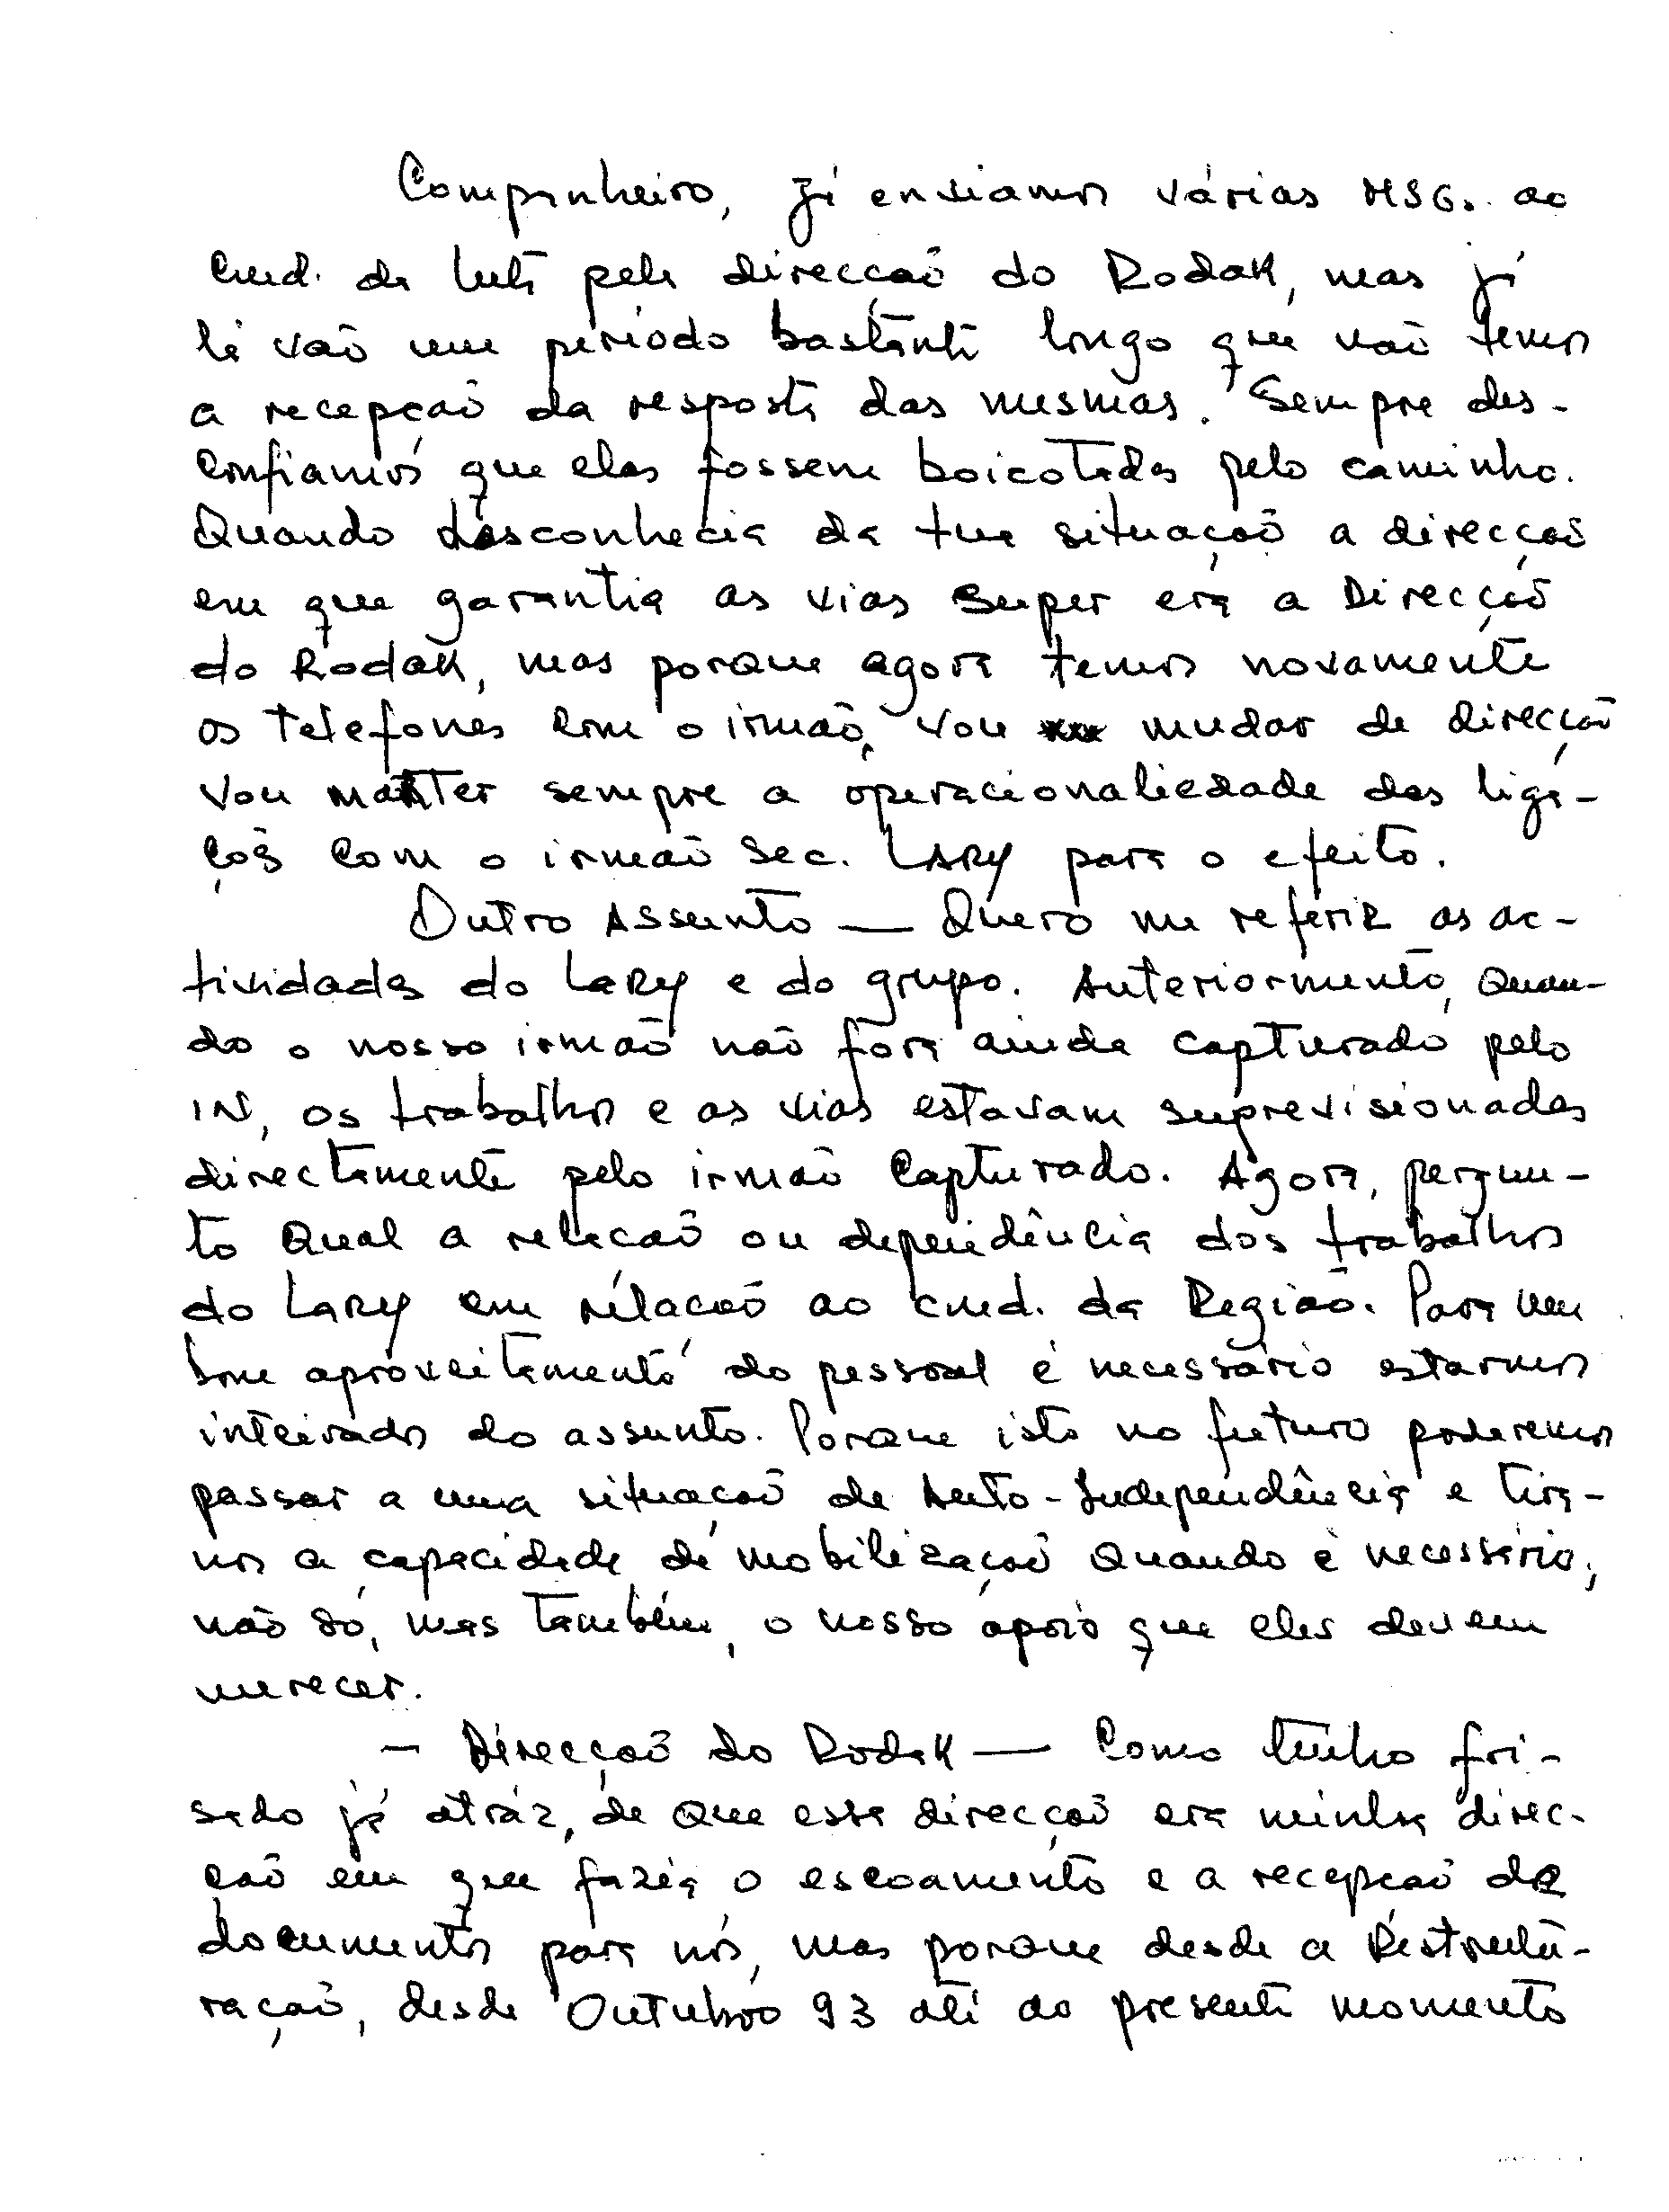 Companheiro, já enviamos várias MSG. ao
Cmd. da luta pela direcção do Rodak, mas já
lá vão um período bastante longo que não temos
a recepção da resposta das mesmas. Sempre des-
confiamos que elas fossem boicotadas pelo caminho.
Quando desconhecia da tua situação a direcção
em que garantia as vias super era a Direcção
do Rodak, mas porque agora temos novamente
os telefones com o irmão, vou mudar de direcção
vou manter sempre a operacionaliedade das liga-
ções com o irmão Sec. LARY para o efeito.
Outro Assunto — Quero me referir as ac-
tividades do Lary e do grupo. Anteriormento, quan-
do o nosso irmão não fora ainda capturado pelo
IN, os trabalhos e as vias estavam suprevisionadas
directamente pelo irmão Capturado. Agora, pergun-
to qual a relacão ou dependência dos trabalhos
do Lary em rélacão ao cmd. da Região. Para um
bom aproveitamento do pessoal é necessário estarmos
inteirados do assunto. Porque isto no futuro poderemos
passar a uma situação de Auto-Independência e tira-
nos a capacidade de mobilização quando é necessário,
não só, mas também, o nosso apoio que eles devem
merecer.
— Direcção do Rodak — Como tinha fri-
sado já atráz, de que essa direcção era minha direc-
cão em que fazia o escoamento e a recepção de
documentos para nós, mas porque desde a Restrutu-
ração, desde Outubro 93 até ao presente momento